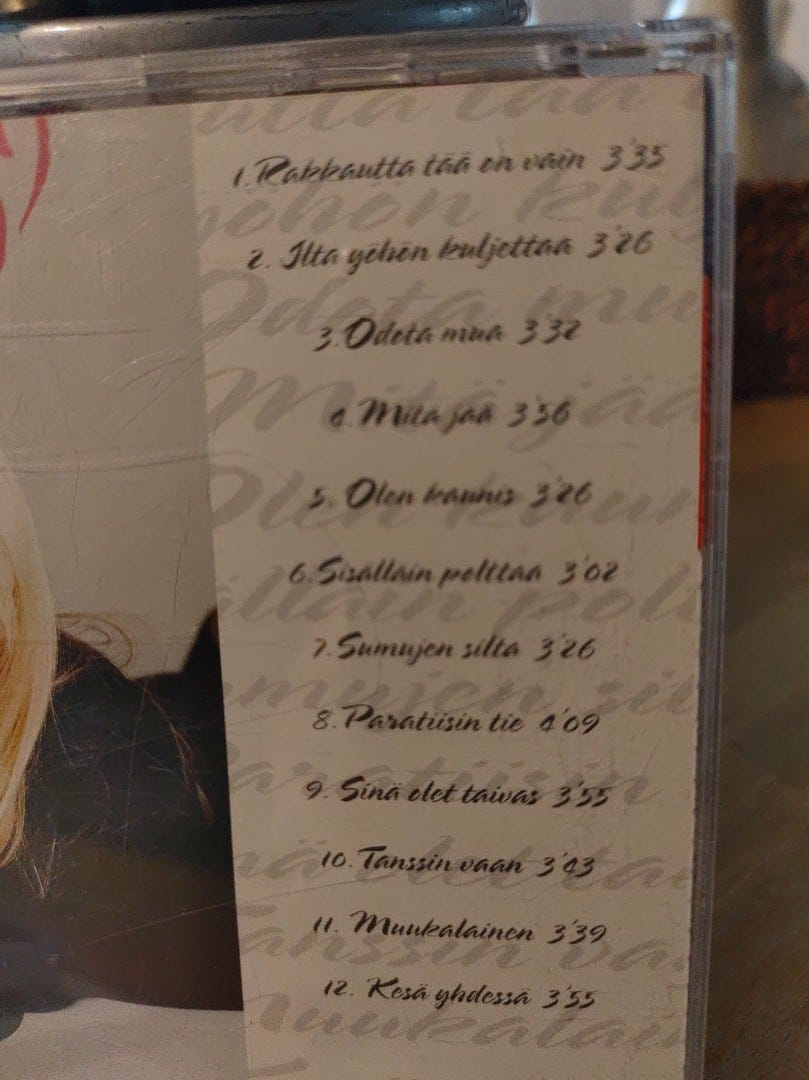 1. Rakkautta tää on vain 3'35
2. Ilta yöhön kuljettaa 3'26
3. Odota mua 3'32
4. Mitä jää 3'56
5. Olen kaunis 3'26
6. Sisälläin polttaa 3'02
7. Sumujen silta 3'26
8. Paratiisin tie 4'09
9. Sinä olet taivas 3'55
10. Tanssin vaan 3'43
11. Muukalainen 3'39
12. Kesä yhdessä 3'55